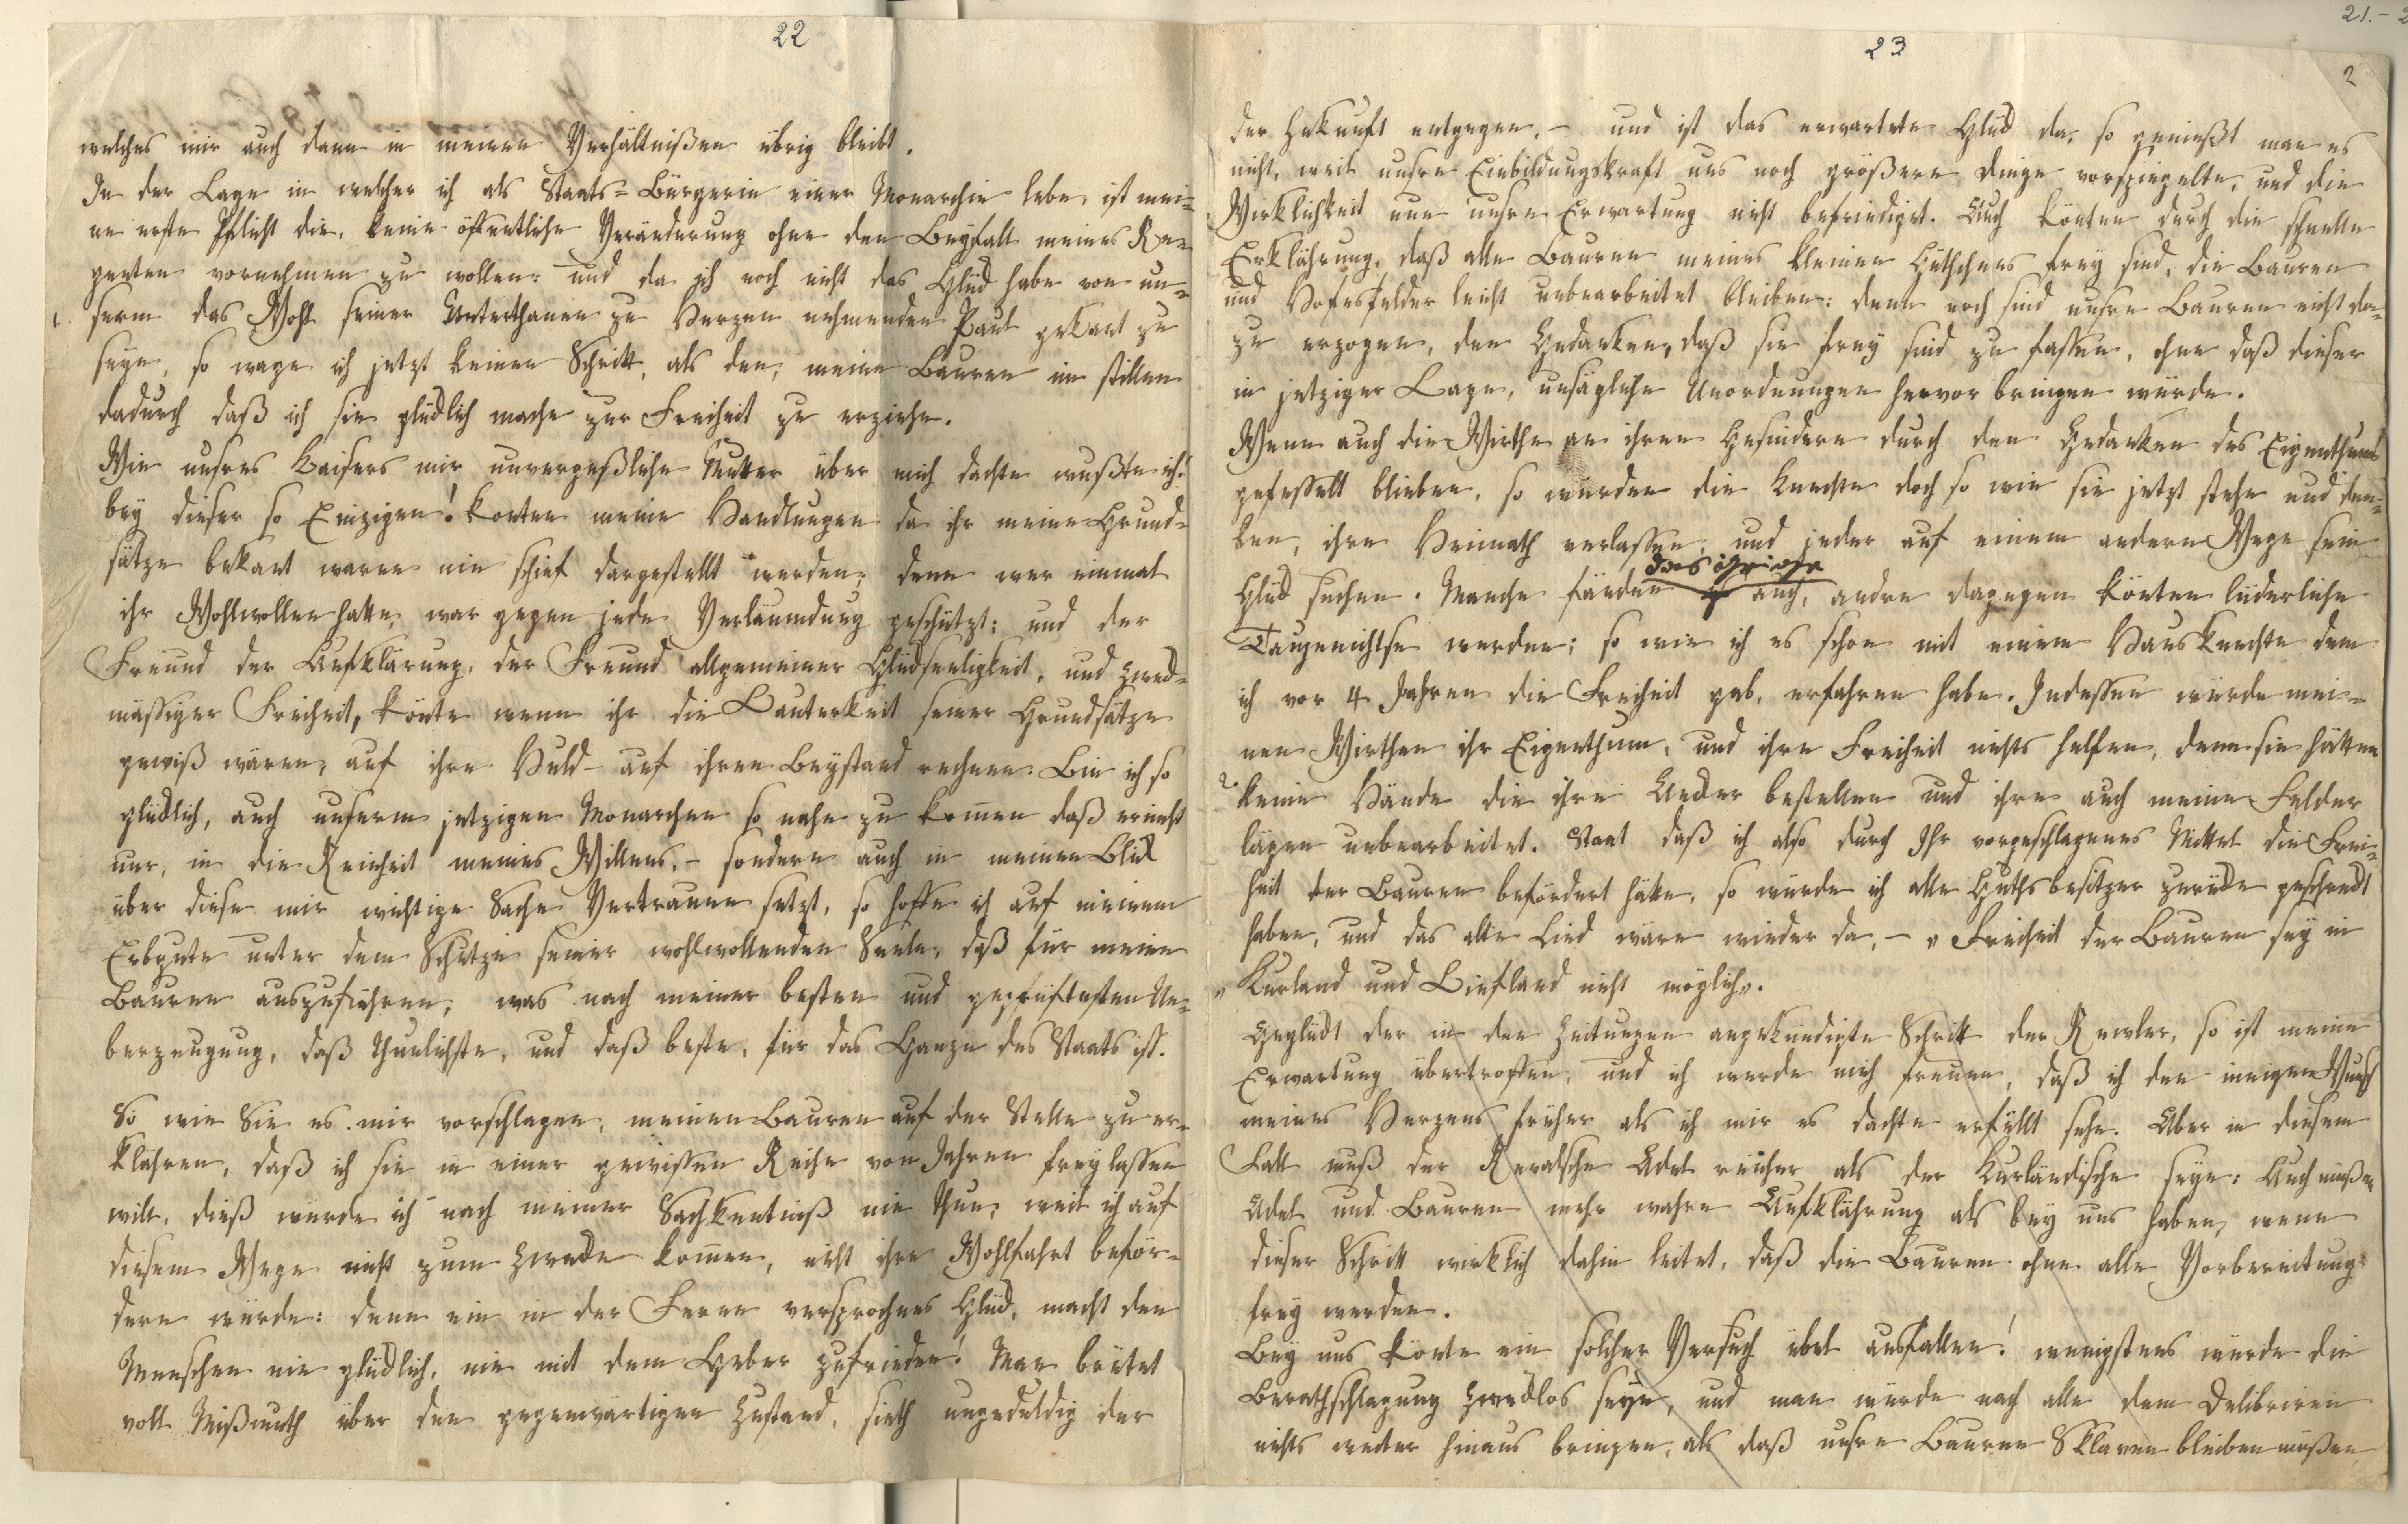 22
welches mir auch dann in meinen Verhältnißen übrig bleibt.
In der Lage in welcher ich als Staats-Bürgerin einer Monarchie lebe, ist mei-
ne erste Pflicht die, keine öffentliche Veränderung ohne den Beyfall meines Re-
genten vornehmen zu wollen: und da ich noch nicht das Glück habe von un-
serm das Wohl seiner Unterthanen zu Herzen nehmenden Paul gekant zu
seyn, so wage ich jetzt keinen Schritt, als den, meine Bauren im stillen
dadurch daß ich sie glücklich mache zur Freiheit zu erziehn.
Wie unsres Kaisers mir unvergeßliche Mutter über mich dachte wußte ich!
bey dieser so Einzigen! konten meine Handlungen da ihr meine Grund-
sätze bekant waren nie schief dargestellt werden; denn wer einmal
ihr Wohlwollen hatte, war gegen jede Verläumdung geschützt; und der
Freund der Aufklärung, der Freund allgemeiner Glückseeligkeit, und zweck-
mässiger Freiheit, konte wenn ihr die Lauterkeit seiner Grundsätze
gewiß wären, auf ihre Huld – auf ihren Beystand rechnen. Bin ich so
glücklich, auch unserm jetzigen Monarchen so nahe zu kommen daß er nicht
nur, in die Reinheit meines Willens, – sondern auch in meinen Blick
über diese mir wichtige Sache Vertrauen setzt, so hoffe ich auf meinem
Erbgute unter dem Schutze seiner wohlwollenden Seele, daß für meine
Bauren auszuführen, was nach meiner besten und geprüftesten Ue-
berzeugung, daß thunlichste, und daß beste, für das Ganze des Staats ist.
So wie Sie es mir vorschlagen, meinen Bauren auf der Stelle zu er-
klähren, daß ich sie in einer gewissen Reihe von Jahren frey lassen
will, dieß würde ich nach meiner Sachkentniß nie thun, weil ich auf
diesem Wege nicht zum Zwecke kommen, nicht ihre Wohlfahrt beför-
dern würde: denn ein in der Ferne versprochnes Glück, macht den
Menschen nie glücklich, nie mit dem Geber zufrieden! Man brütet
voll Mißmuth über den gegenwärtigen Zustand, sieth ungeduldig der
21.-2
23
2
der Zukunft entgegen, – und ist das erwartete Glück da, so genießt man es
nicht, weil unsre Einbildungskraft uns noch größere Dinge vorspiegelte, und die
Wirklichkeit nun unsre Erwartung nicht befriediget. Auch könten durch die schnelle
Erklährung, daß alle Bauren meines kleinen Gütchens frey sind, die Bauren
und Hofesfelder leicht unbearbeitet bleiben: denn noch sind unsre Bauren nicht da-
zu erzogen, den Gedanken, daß sie frey sind zu fassen, ohne daß dieser
in jetziger Lage, unsägliche Unordnungen hervor bringen würde.
Wenn auch die Wirthe an ihren Gesindern durch den Gedanken des Eigenthums
gefesselt blieben, so würden die Knechte doch so wie sie jetzt stehn und den-
ken, ihre Heimath verlassen, und jeder auf einem andern Wege sein
Glück suchen. Manche fänden auch, andre dagegen könten lüderliche
Taugenichtse werden; so wie ich es schon mit einem Hausknechte dem
ich vor 4 Jahren die Freiheit gab, erfahren habe. Indessen würde mei-
nen Wirthen ihr Eigenthum, und ihre Freiheit nichts helfen, denn sie hätten
keine Hände die ihre Aecker bestellen und ihre auch meine Felder
lägen unbearbeitet. Staat daß ich also durch Ihr vorgeschlagenes Mittel die Frei-
heit der Bauren befördert hätte, so würde ich alle Guthsbesitzer zurücke geschreckt
haben, und das alte Lied wäre wieder da, – „Freiheit der Bauren sey in
„Kurland und Liefland nicht möglich„.
Geglückt der in den Zeitungen angekündigte Schritt der Revler, so ist meine
Erwartung übertroffen, und ich werde mich freuen, daß ich den innigen Wunsch
meines Herzens früher als ich mir es dachte erfüllt sehe. Aber in diesem
Fall muß der Revalsche Adel reicher als der Kurländische seyn: Auch müßen
Adel und Bauren mehr wahre Aufklährung als bey uns haben, wenn
dieser Schritt wirklich dahin leitet, daß die Bauren ohne alle Vorbereitung
frey werden.
Bey uns könte ein solcher Versuch übel ausfallen! wenigstens würde die
Berathschlagung zwecklos seyn, und man würde nach alle dem Delibriren
nichts weiter hinaus bringen, als daß unsre Bauren Sklaven bleiben müßen,